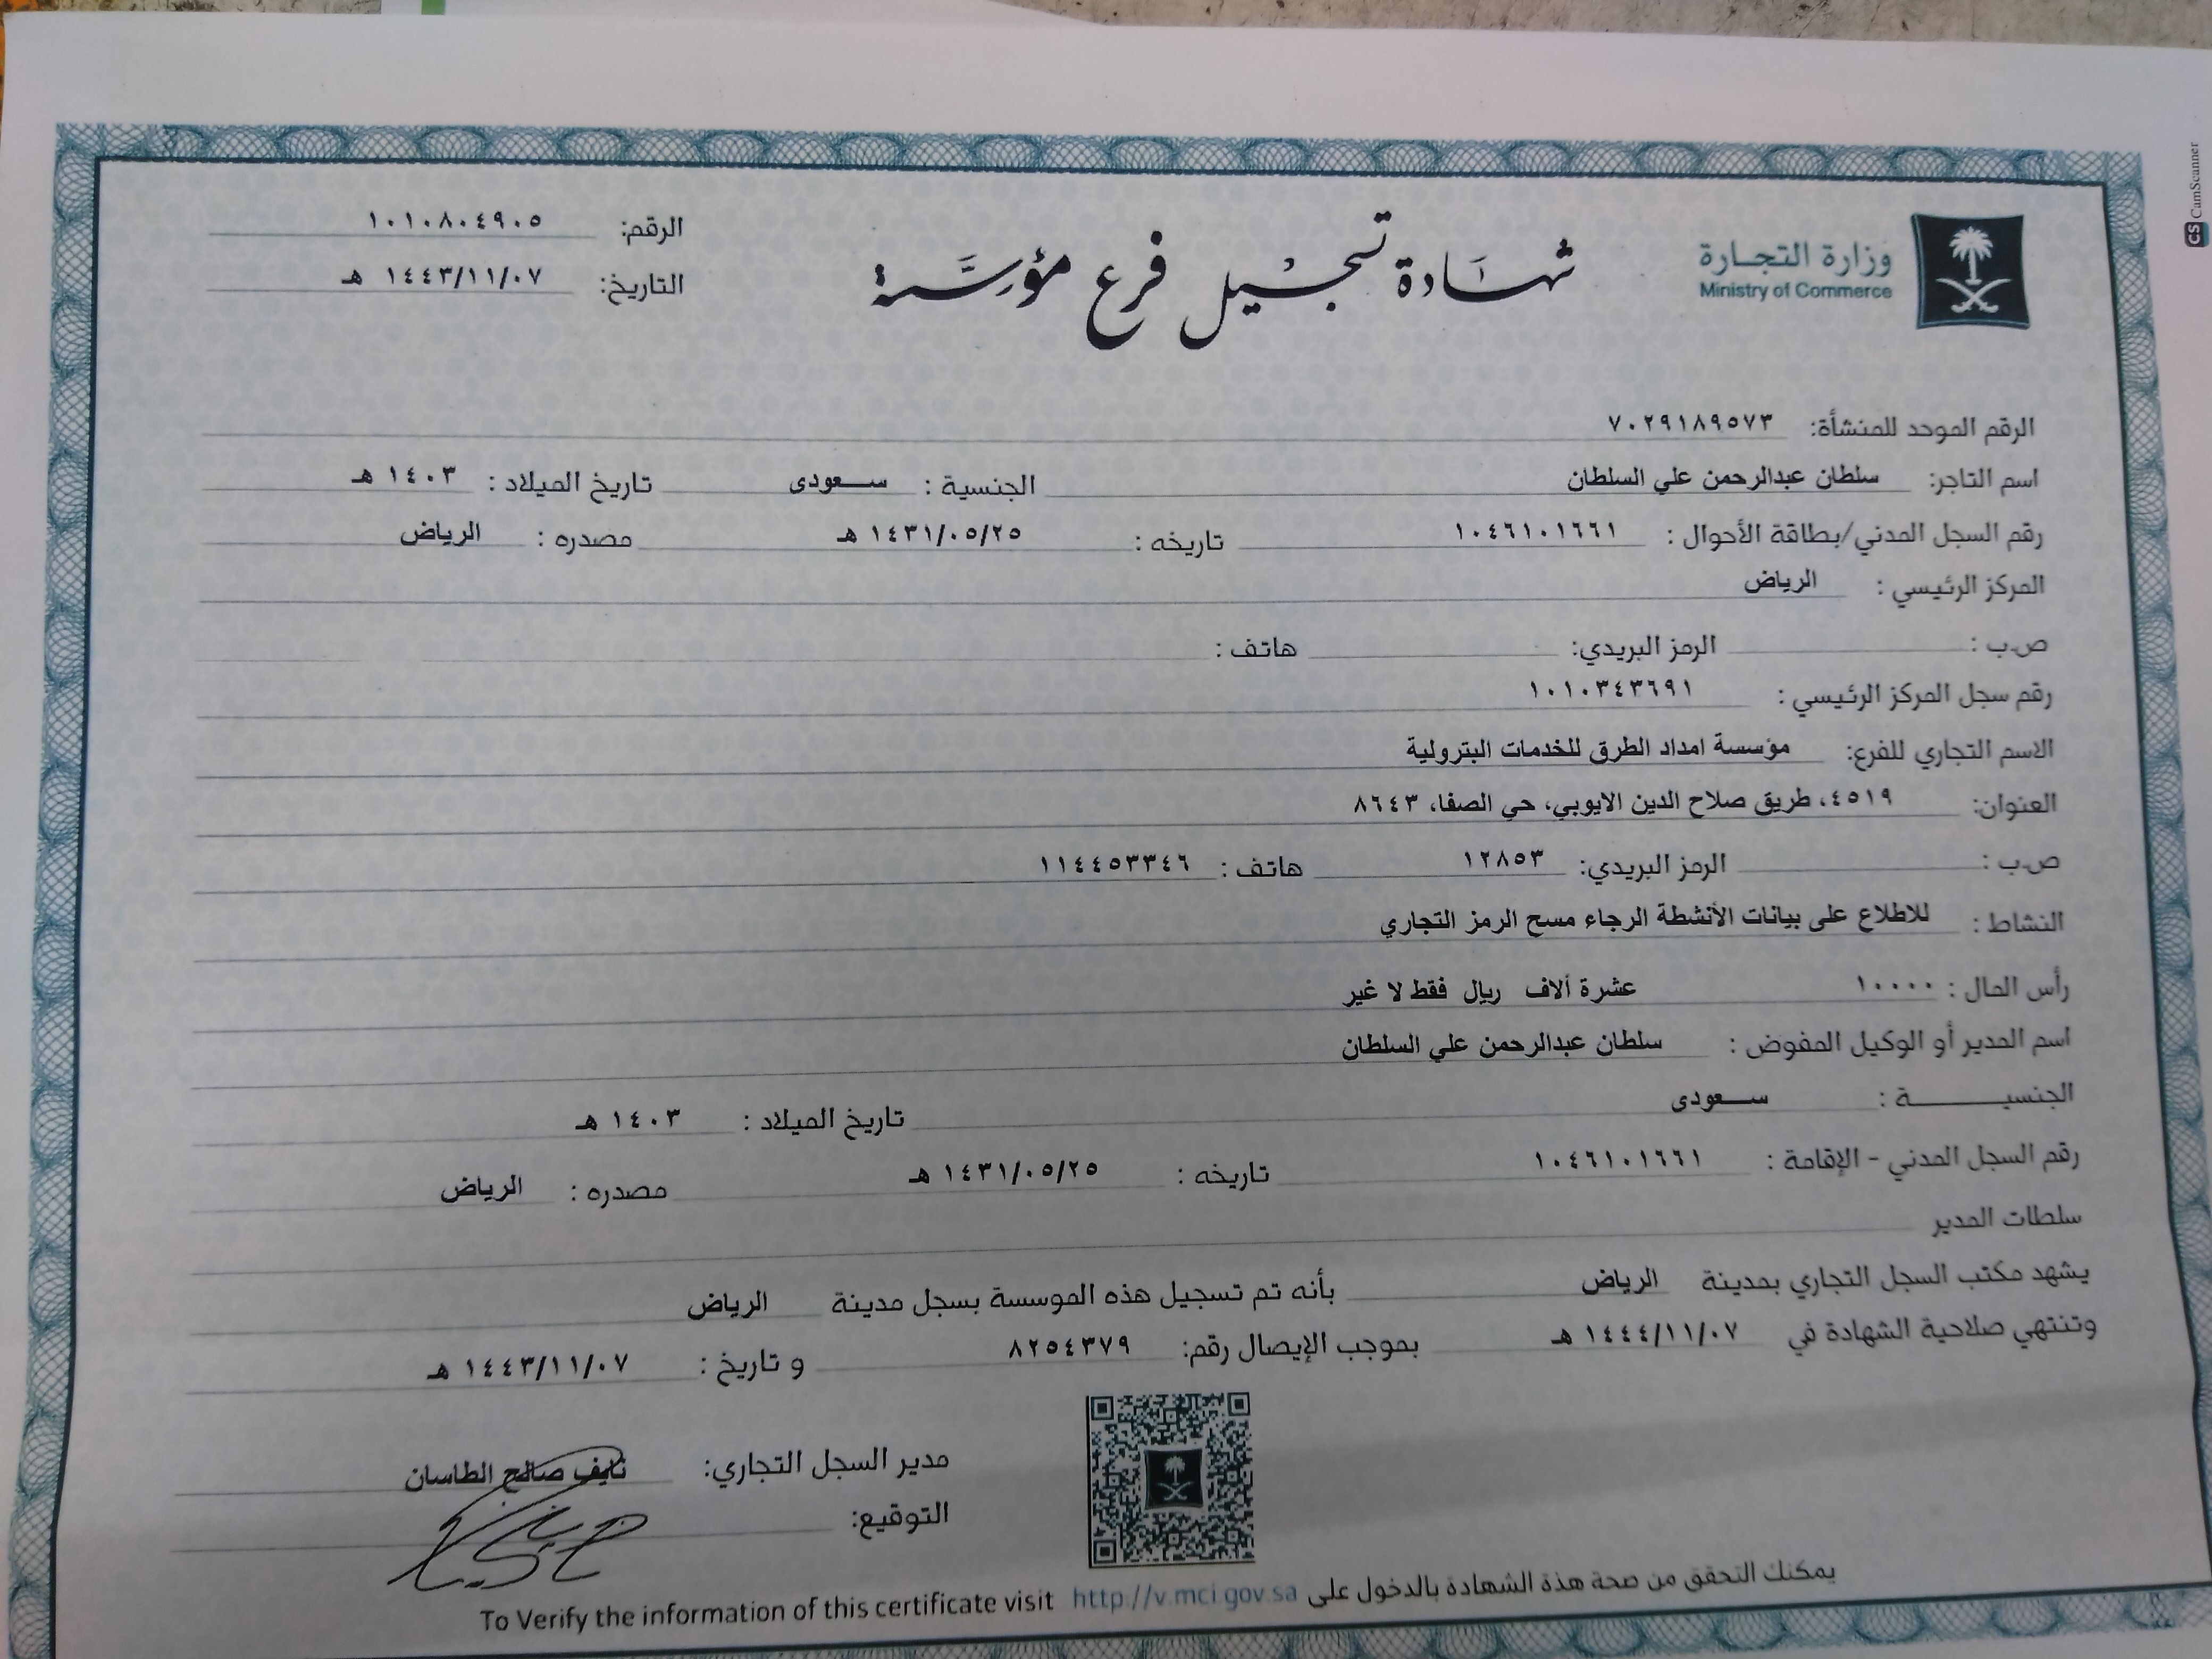 وزارة التجارة
Ministry of Commerce
شهادة تسجيل فرع مؤسسة
الرقم: ١٠١٠٨٠٤٩٠٥
التاريخ: ١٤٤٣/١١/٠٧ هـ
الرقم الموحد للمنشأة: ٧٠٢٩١٨٩٥٧٣
اسم التاجر: سلطان عبدالرحمن علي السلطان الجنسية : سعودى تاريخ الميلاد : ١٤٠٣ هـ
رقم السجل المدني/بطاقة الأحوال : ١٠٤٦١٠١٦٦١ تاريخه : ١٤٣١/٠٥/٢٥ هـ مصدره : الرياض
المركز الرئيسي : الرياض
ص.ب : الرمز البريدي: هاتف :
رقم سجل المركز الرئيسي : ١٠١٠٣٤٣٦٩١
الاسم التجاري للفرع: مؤسسة امداد الطرق للخدمات البترولية
العنوان: ٤٥١٩، طريق صلاح الدين الايوبي، حي الصفا، ٨٦٤٣
ص.ب : الرمز البريدي: ١٢٨٥٣ هاتف : ١١٤٤٥٣٣٤٦
النشاط : للاطلاع على بيانات الأنشطة الرجاء مسح الرمز التجاري
رأس المال : ١٠٠٠٠ عشرة ألاف ريال فقط لا غير
اسم المدير أو الوكيل المفوض : سلطان عبدالرحمن علي السلطان
الجنسيــــــة : سعودى تاريخ الميلاد : ١٤٠٣ هـ
رقم السجل المدني - الإقامة : ١٠٤٦١٠١٦٦١ تاريخه : ١٤٣١/٠٥/٢٥ هـ مصدره : الرياض
سلطات المدير
يشهد مكتب السجل التجاري بمدينة الرياض بأنه تم تسجيل هذه الموسسة بسجل مدينة الرياض
وتنتهي صلاحية الشهادة في ١٤٤٤/١١/٠٧ هـ بموجب الإيصال رقم: ٨٢٥٤٣٧٩ و تاريخ : ١٤٤٣/١١/٠٧ هـ
مدير السجل التجاري: نايف صالح الطاسان
التوقيع:
يمكنك التحقق من صحة هذة الشهادة بالدخول على http://v.mci.gov.sa To Verify the information of this certificate visit
CS CamScanner